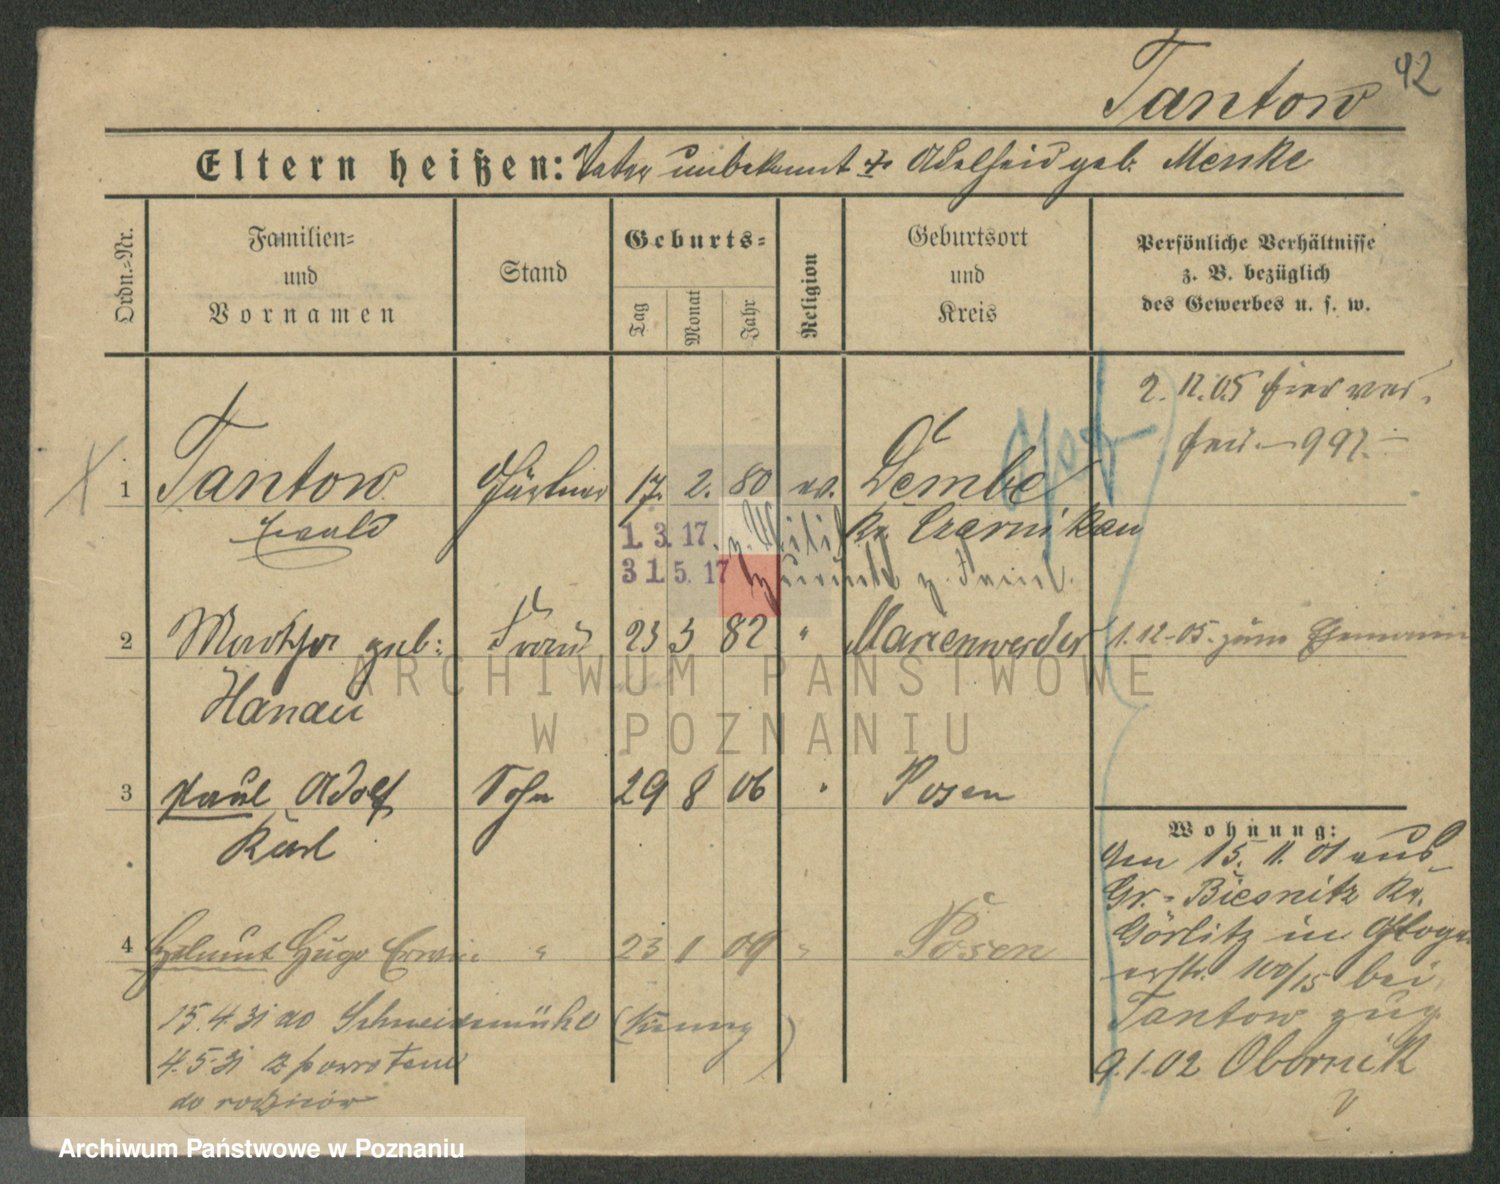 Tantow 42
Eltern heißen: Vater unbekannt u. Adelheid geb. Menke
Ordn.=Nr.
Familien=
und
Vornamen
Stand
Geburts=
Tag
Monat
Jahr
Religion
Geburtsort
und
Kreis
Persönliche Verhältnisse
z. B. bezüglich
des Gewerbes u. s. w.
2. 12. 05 hier ver-
heir. 997.
1 Tantow Gärtner 17. 2. 80 ev. Dembe
Ewald Kr. Czarnikau
1. 3. 17. z. Militär
31. 5. 17 zurück z. Famil.
2 Martha geb: Frau 23 3 82 " Marienwerder 1. 12. 05. zum Ehemann
Hanau
ARCHIWUM PAŃSTWOWE
W POZNANIU
3 Paul Adolf Sohn 29 8 06 " Posen
Karl
Wohnung:
Am 15. 11. 01 aus
Gr.= Biesnitz Kr.
Görlitz in Glogau
erstr. 100/15 bei
Tantow zug
9. 1. 02 Obornik
4 Helmut Hugo Erwin " 23 1 09 " Posen
15. 4. 31 do Schneidemühl
4. 5. 31 z powrotem
do rodziców
Archiwum Państwowe w Poznaniu